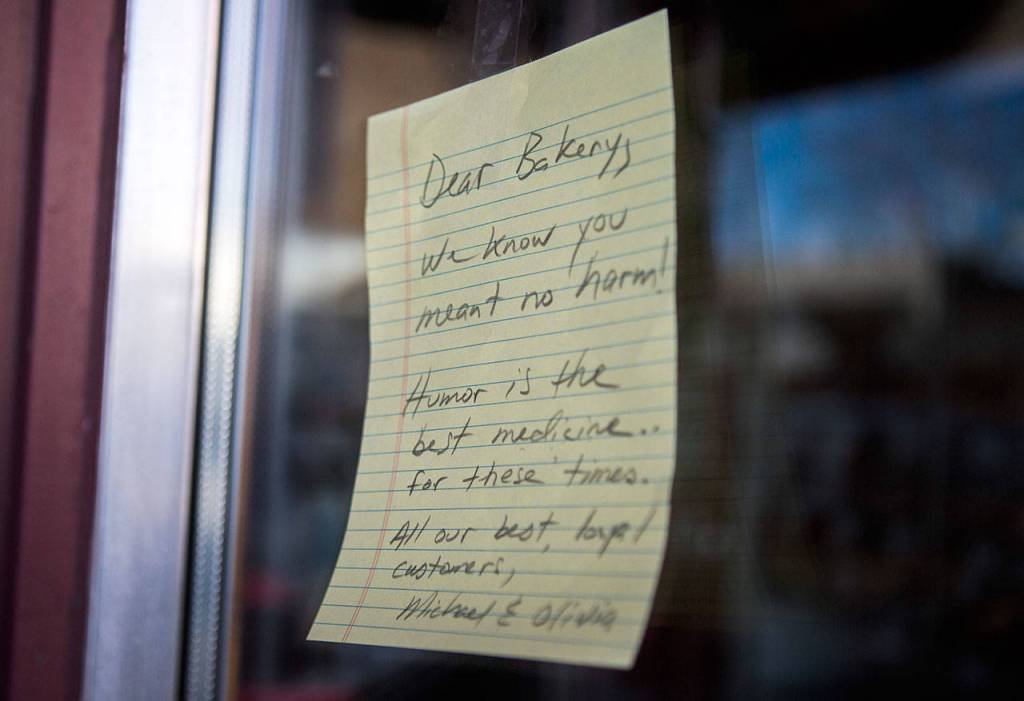 Dear Bakery,
We know you
meant no harm!
Humor is the
best medicine..
for these times.
All our best, loyal
customers,
Michael & Olivia